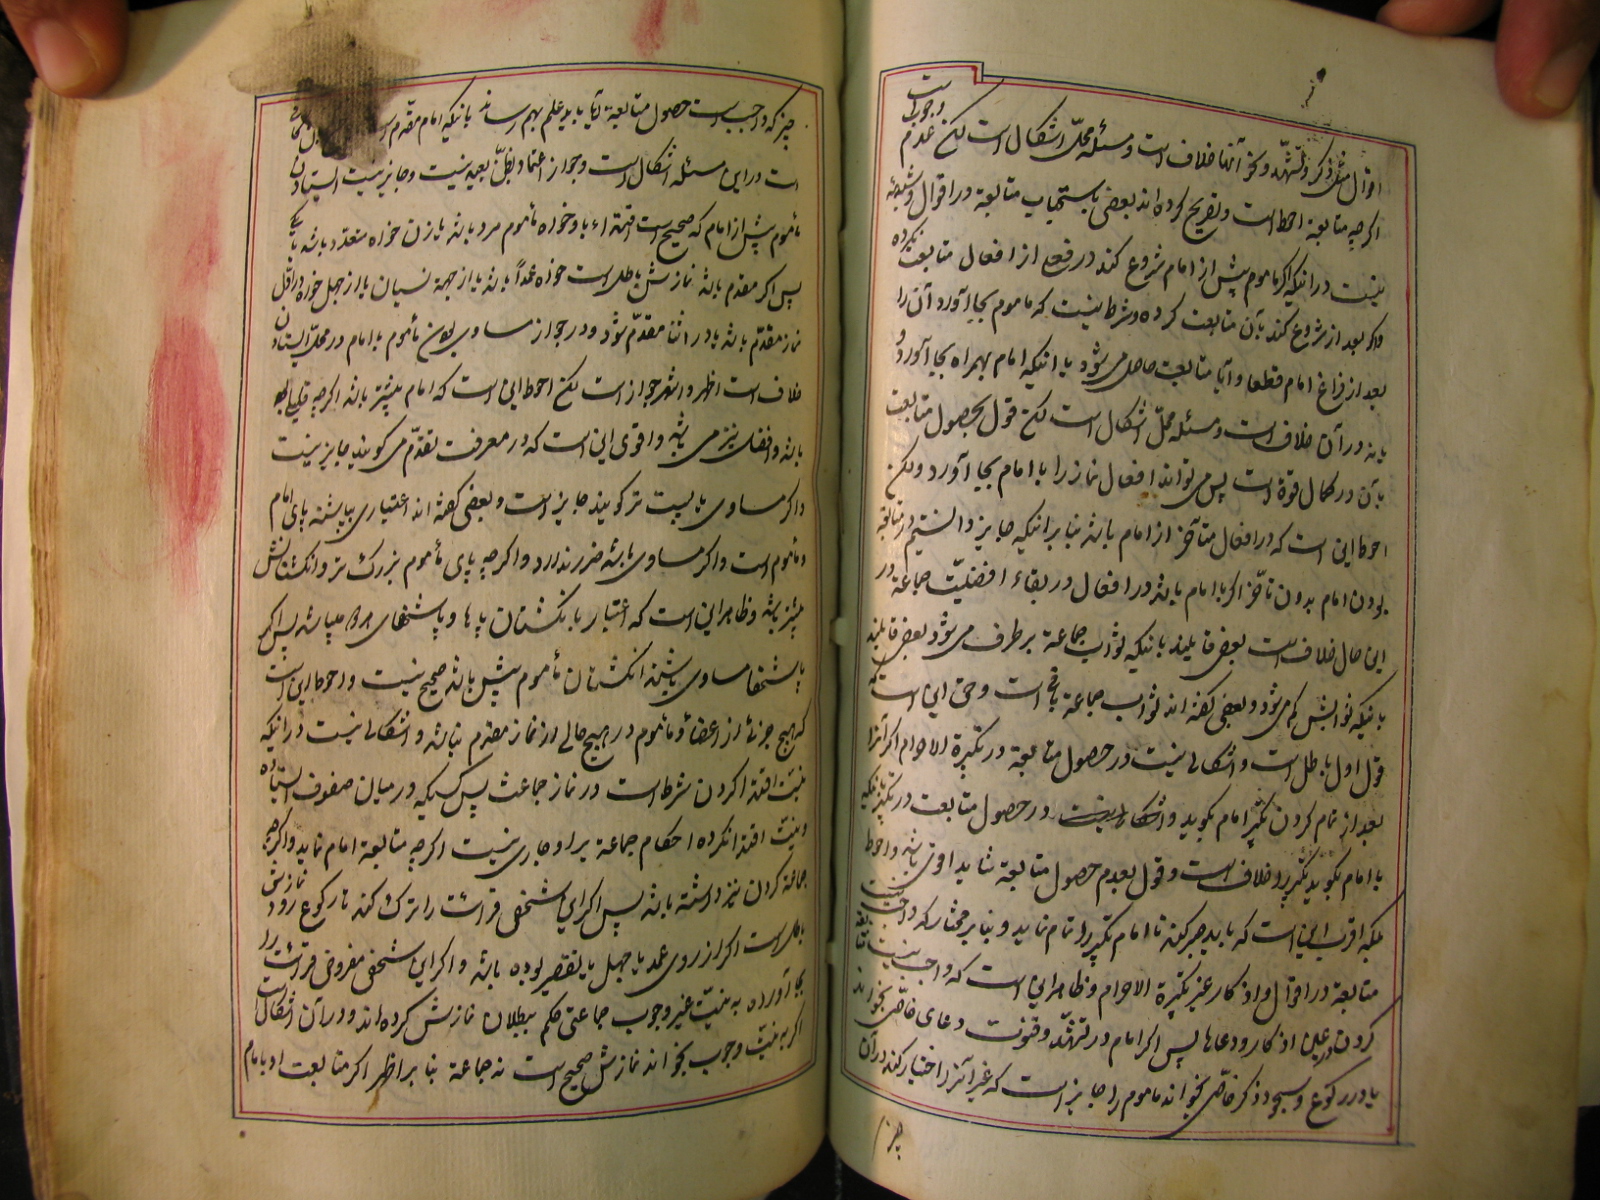 اقوال مثل ذکر و تشهد و نحو آنها خلاف است و مسئله محل اشکال است لکن عدم وجوب است
اگرچه متابعة احوط است و تصریح کرده‌اند بعضی باستحباب متابعة در اقوال و شبهه
نیست در اینکه اگر ماموم پیش از امام شروع کند در فعلی از افعال متابعت نکرده
و اگر بعد از شروع کند بآن متابعت کرده و شرط نیست که ماموم بجا آورد آن را
بعد از فراغ امام قطعا و آیا متابعت حاصل می‌شود با اینکه امام بهمراه بجا آورد و
یا نه در آن خلاف است و مسئله محل اشکال است لکن قول بحصول متابعت
بآن در کمال قوة است پس می‌تواند افعال نماز را با امام بجا آورد و لکن
احوط این است که در افعال متأخر از امام باشد بنا بر اینکه جایز دانستیم در متابعة
بودن امام بدون تأخر اگر با امام باشد در افعال در بقاء افضلیت جماعة در
این حال خلاف است بعضی قایلند باینکه ثواب جماعة برطرف می‌شود بعضی قایلند
باینکه ثوابش کم می‌شود و بعضی گفته‌اند ثواب جماعة باقی است و حق این است که
قول اول باطل است و اشکالی نیست در حصول متابعة در تکبیرة الاحرام اگر آنرا
بعد از تمام کردن تکبیر امام بگوید و در حصول متابعت در تکبیر باینکه
با امام بگوید تکبیر را خلاف است و قول بعدم حصول متابعة شاید اقوی باشد و احوط
بلکه اقرب این است که باید صبر کند تا امام تکبیر را تمام نماید و بنا بر مختار که واجب نیست
متابعة در اقوال و اذکار غیر تکبیرة الاحرام و ظاهر این است که واجب نیست متابعة
کردن در عین اذکار و دعاها پس اگر امام در تشهد و قنوت دعای خاصی بخواند
یا در رکوع و سجود ذکر خاصی بخواند ماموم را جایز است که غیر آنرا اختیار کند در آن
چیز که واجب است حصول متابعة آیا باید علم بهم رساند باینکه امام مقدم
است در این مسئله اشکال است و جواز اعتماد بظن بعید نیست و جایز نیست ایستادن
مأموم پیش از امام که صحیح است اقتداء باو خواه مأموم مرد باشد یا زن خواه متعدد باشد یا یکی
پس اگر مقدم باشد نمازش باطل است خواه عمداً باشد یا از جهة نسیان یا از جهل خواه در اول
نماز مقدم باشد یا در اثنا مقدم شود و در جواز مساوی بودن مأموم با امام در محل ایستادن
خلاف است اظهر و اشهر جواز است لکن احوط این است که امام پیشتر باشد اگرچه قلیلی
باشد و افضل نیز می‌باشد و اقوی این است که در معرفت تقدم می‌گویند جایز نیست
و اگر مساوی یا پست‌تر گویند جایز است و بعضی گفته‌اند اعتباری بپاشنه پای امام
و مأموم است و اگر مساوی باشد ضرر ندارد و اگرچه پای مأموم بزرگ‌تر و انگشتانش
پیشتر باشد و ظاهر این است که اعتبار بانگشتان پاها و پاشنهای هر دو میباشد پس اگر
پاشنها مساوی باشند انگشتان مأموم پیش باشد صحیح نیست و احوط این است
که هیچ جزئی از اعضاء مأموم در هیچ حالی از نماز مقدم نباشد و اشکالی نیست در اینکه
نیت اقتدا کردن شرط است در نماز جماعت پس کسیکه در میان صفوف ایستاده
و نیت اقتدا نکرده احکام جماعة بر او جاری نیست اگرچه متابعة امام نماید و اگرچه
جماعة کردن نیز داشته باشد پس اگر این شخص قرائت را ترک کند تا رکوع رود نمازش
باطل است اگر از روی عمد یا جهل یا تقصیر بوده باشد و اگر این شخص مفروض قرائت را
بجا آورده به نیت غیر وجوب جماعتی حکم ببطلان نمازش کرده‌اند و در آن اشکال است
اگر به نیت وجوب بخواند نمازش صحیح است نه جماعة بنا بر اظهر اگر متابعت او با امام